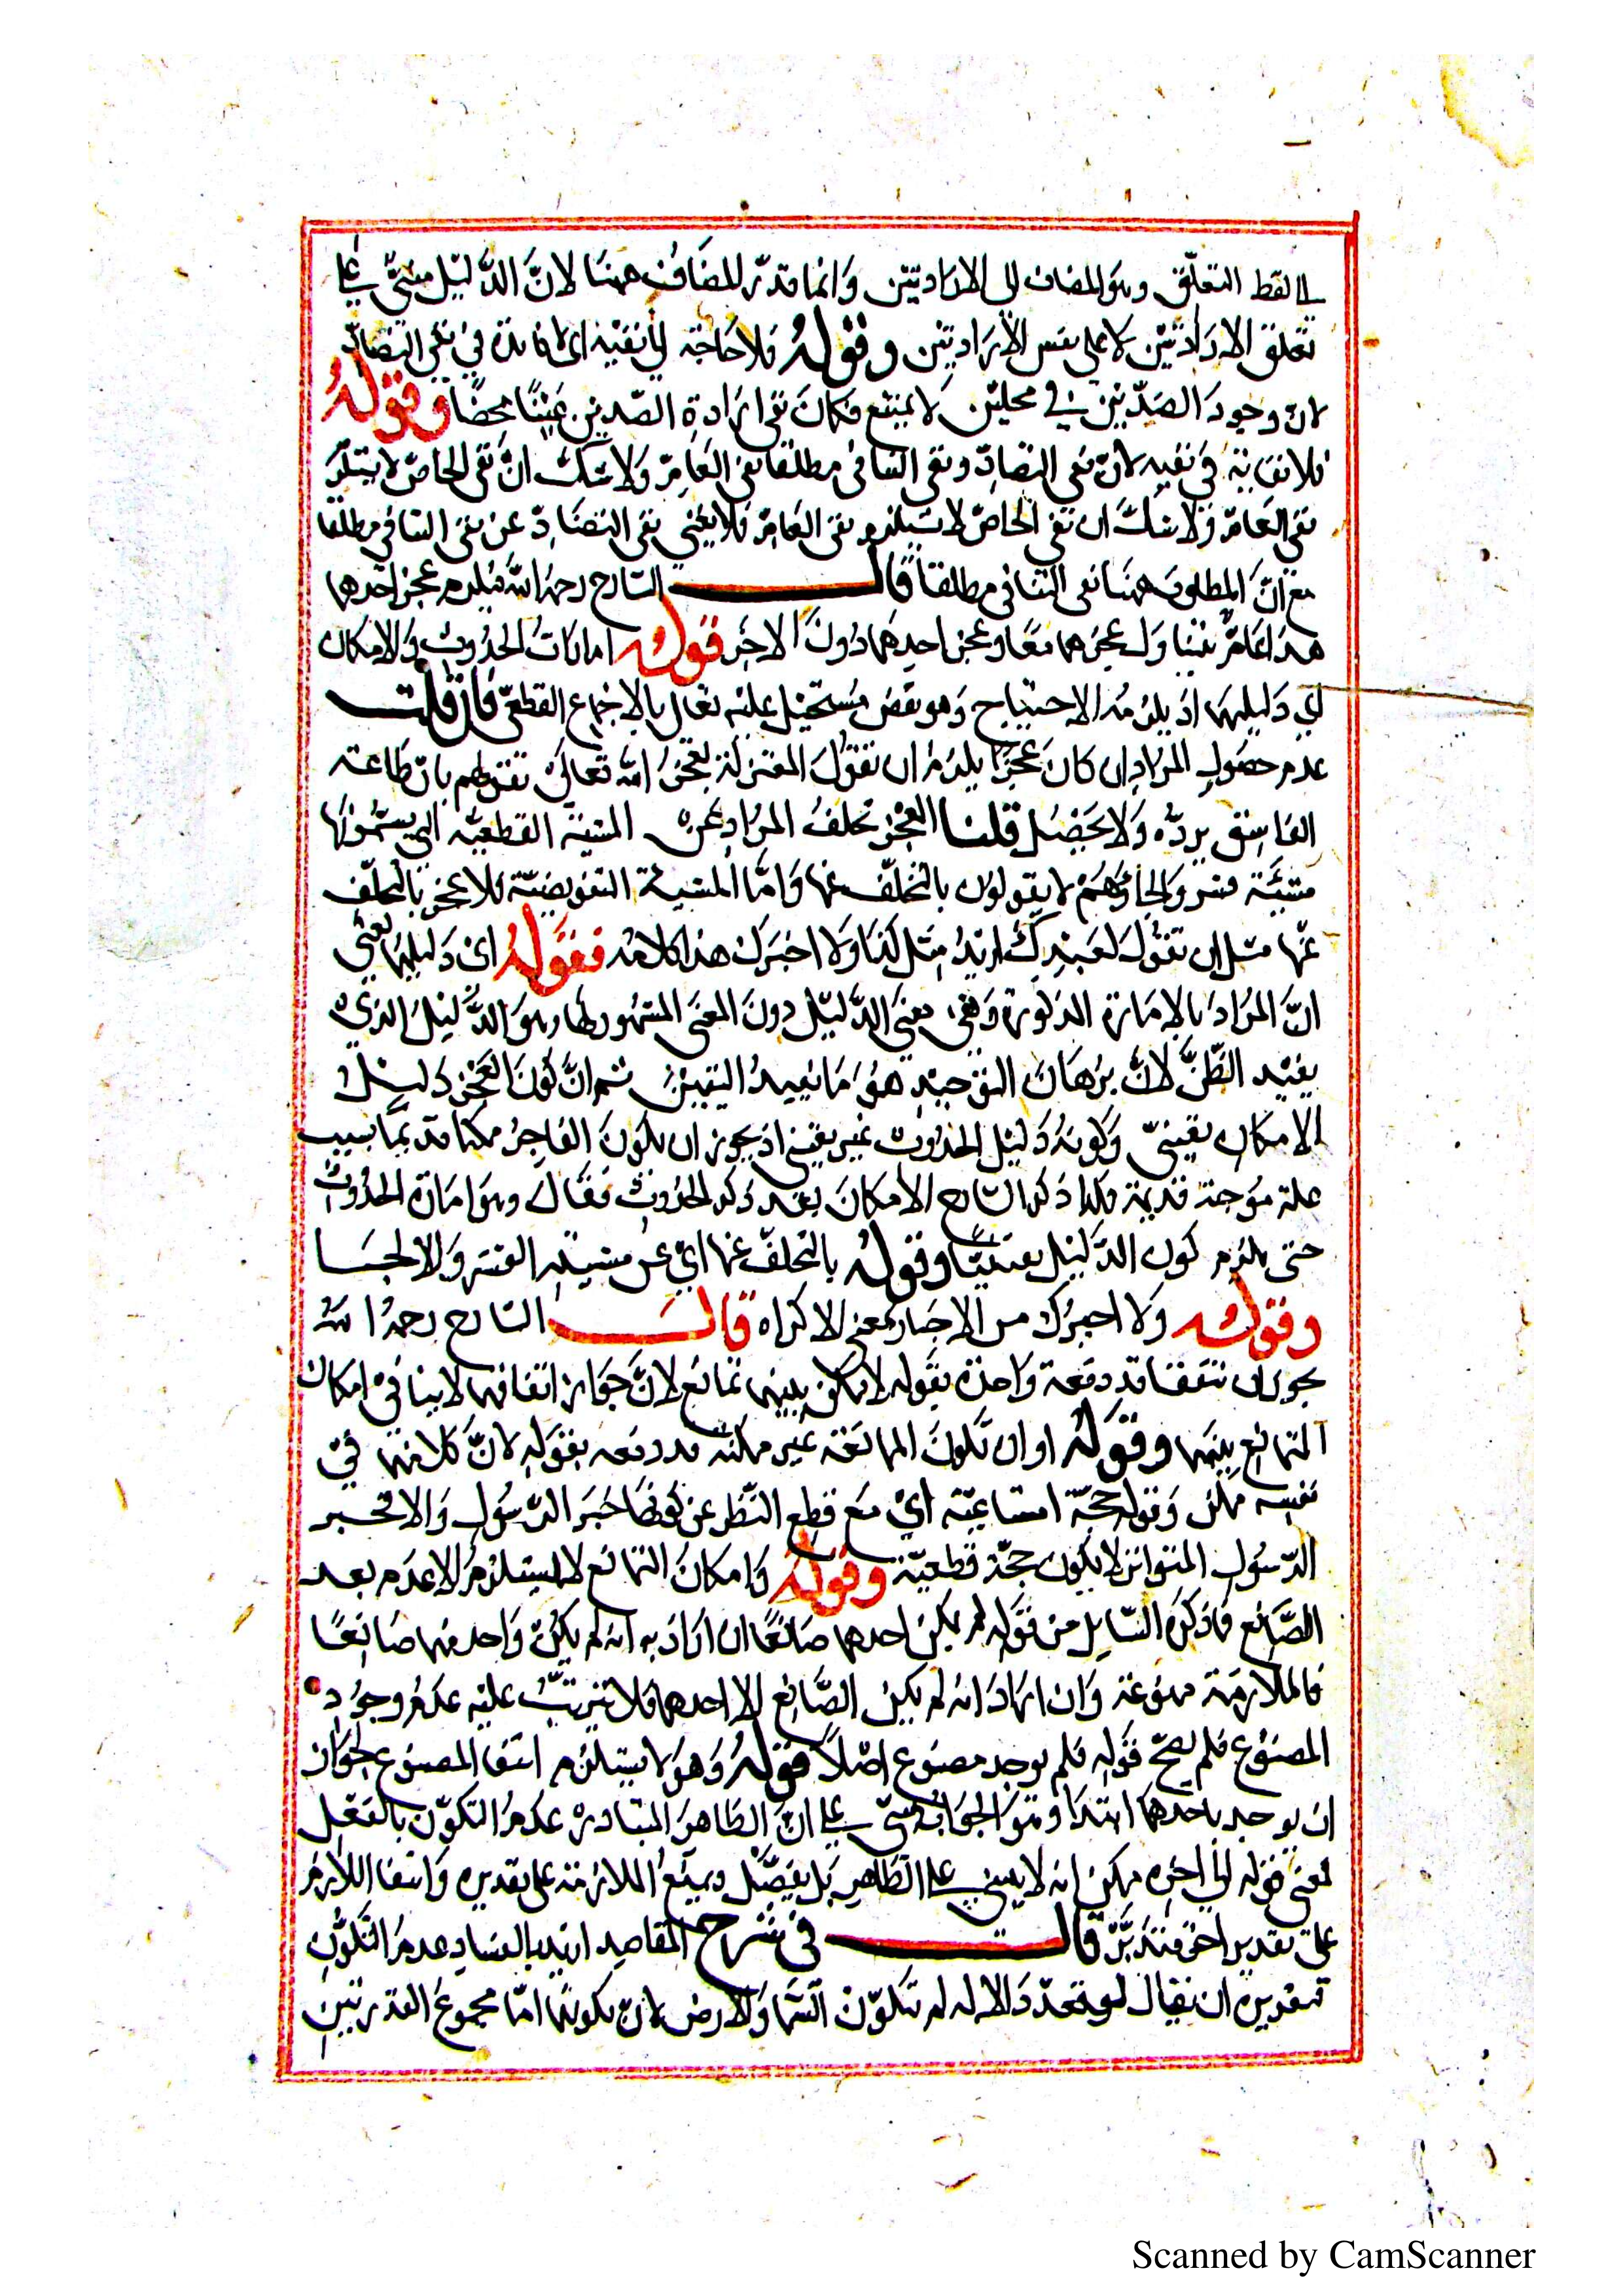 الى لفظ التعلّق وهو المضاف الى الارادتين وانما قدّر المضاف ههنا لانّ الدّليل مبنيّ على
تعلق الارادتين لا على نفس الارادتين وقوله فلا حاجة الى نفيه اى لا فائدة في نفي التضادّ
لان وجود الضدّين في محلين لا يمتنع فكان نفي ارادة الضدين عبثا محضا وقوله
فلانفا نية في نفيه لانّ نفي التضادّ ونفي التنافي مطلقا نفي العامّ ولا شكّ انّ نفي الخاصّ لا يستلزم
نفي العامّ ولا شكّ ان نفي الخاصّ لا يستلزم نفي العامّ فلا يغني نفي التضادّ عن نفي التنافي مطلقا
مع انّ المطلوب ههنا نفي التنافي مطلقا قال الشارح رحمه الله فيلزم عجز احدهما
هذا عامّ يتناول عجزهما معًا وعجز احدهما دون الاخر قوله امارات الحدوث والامكان
اي دليلهما اذ يلزمه الاحتياج وهو نقص مستحيل عليه تعالى بالاجماع القطعيّ فان قلت
عدم حصول المراد ان كان عجزًا يلزم ان تقول المعتزلة بعجز الله تعالى لقولهم بان طاعة
الفاسق يرده ولا يحصل قلنا العجز تخلف المراد عن المشية القطعيّة التي يسمّونها
مشيّة قسر والجاء وهم لا يقولون بالتخلّف عنها وامّا المشية التفويضيّة فلا عجز بالتخلّف
عنها مثل ان تقول لعبدك اريد مثل كذا ولا اجبرك هذا كلامه فقوله اى دليلهما يعني
انّ المراد بالامارة المذكورة وهي معنى الدّليل دون المعنى المشهور لها وهو الدّليل الذي
يفيد الظنّ لانّ برهان التوحيد هو ما يفيد اليقين ثم انّ كون العجز دليل
الامكان يقينيّ وكونه دليل الحدوث غير يقيني اذ يجوز ان يكون العاجز ممكنا قديما بسبب
علة موجبة قديمة فلذا ذكر الشارح الامكان بعد ذكر الحدوث فقال وهو امارة الحدوث
حتى يلزم كون الدّليل يقينيًّا وقوله بالتخلّف عنها اي عن مشيئة القسر والالجا
وقوله ولا اجبرك من الاجبار بمعنى الاكراه قال الشارح رحمه الله
يجوز ان يتفقا قد دفعه واحدة بقوله لا يمكن بينهما تمانع لانّ جواز اتفاقهما لا ينافي امكان
التمانع بينهما وقوله او ان تكون الممانعة غير ممكنة قد دفعه بقوله لانّ كلا منهما في
نفسه ممكن وقوله حجّة اقناعيّة اي مع قطع النّظر عن كونها خبر الرّسول والا فخبر
الرّسول المتواتر لا يكون حجّة قطعيّة وقوله وامكان التمانع لا يستلزم الا عدم تعدد
الصّانع فما ذكره السّايل من قوله لم يكن احدهما صانعًا ان اراد به انه لم يكن واحد منهما صانعًا
فالملازمة ممنوعة وان اراد انه لم يكن الصّانع الا احدهما فلا يترتّب عليه عدم وجود
المصنوع فلم يصحّ قوله فلم يوجد مصنوع اصلاً قوله وهو لا يستلزم انتفا المصنوع لجواز
ان يوجد باحدهما ابتدا وهو الجواب مبنيّ على انّ الظاهر المتبادر عدم التكوّن بالفعل
فمعنى قوله الى اخره ممكن انه لا يبنى على الظاهر بل يفصّل ويمنع الملازمة على تقدير وانتفا اللازم
على تقدير اخر فتدبّر قال في شرح المقاصد اريد بالفساد عدم التكوّن
تقديره ان يقال لو تعدّد الاله لم تتكوّن السّما والارض لانّ تكونها امّا بمجموع القدرتين